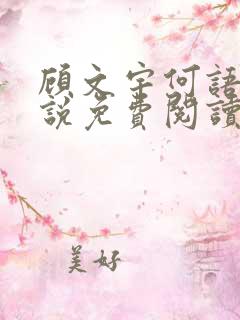 顾文宇何語
說免費閱讀
美好